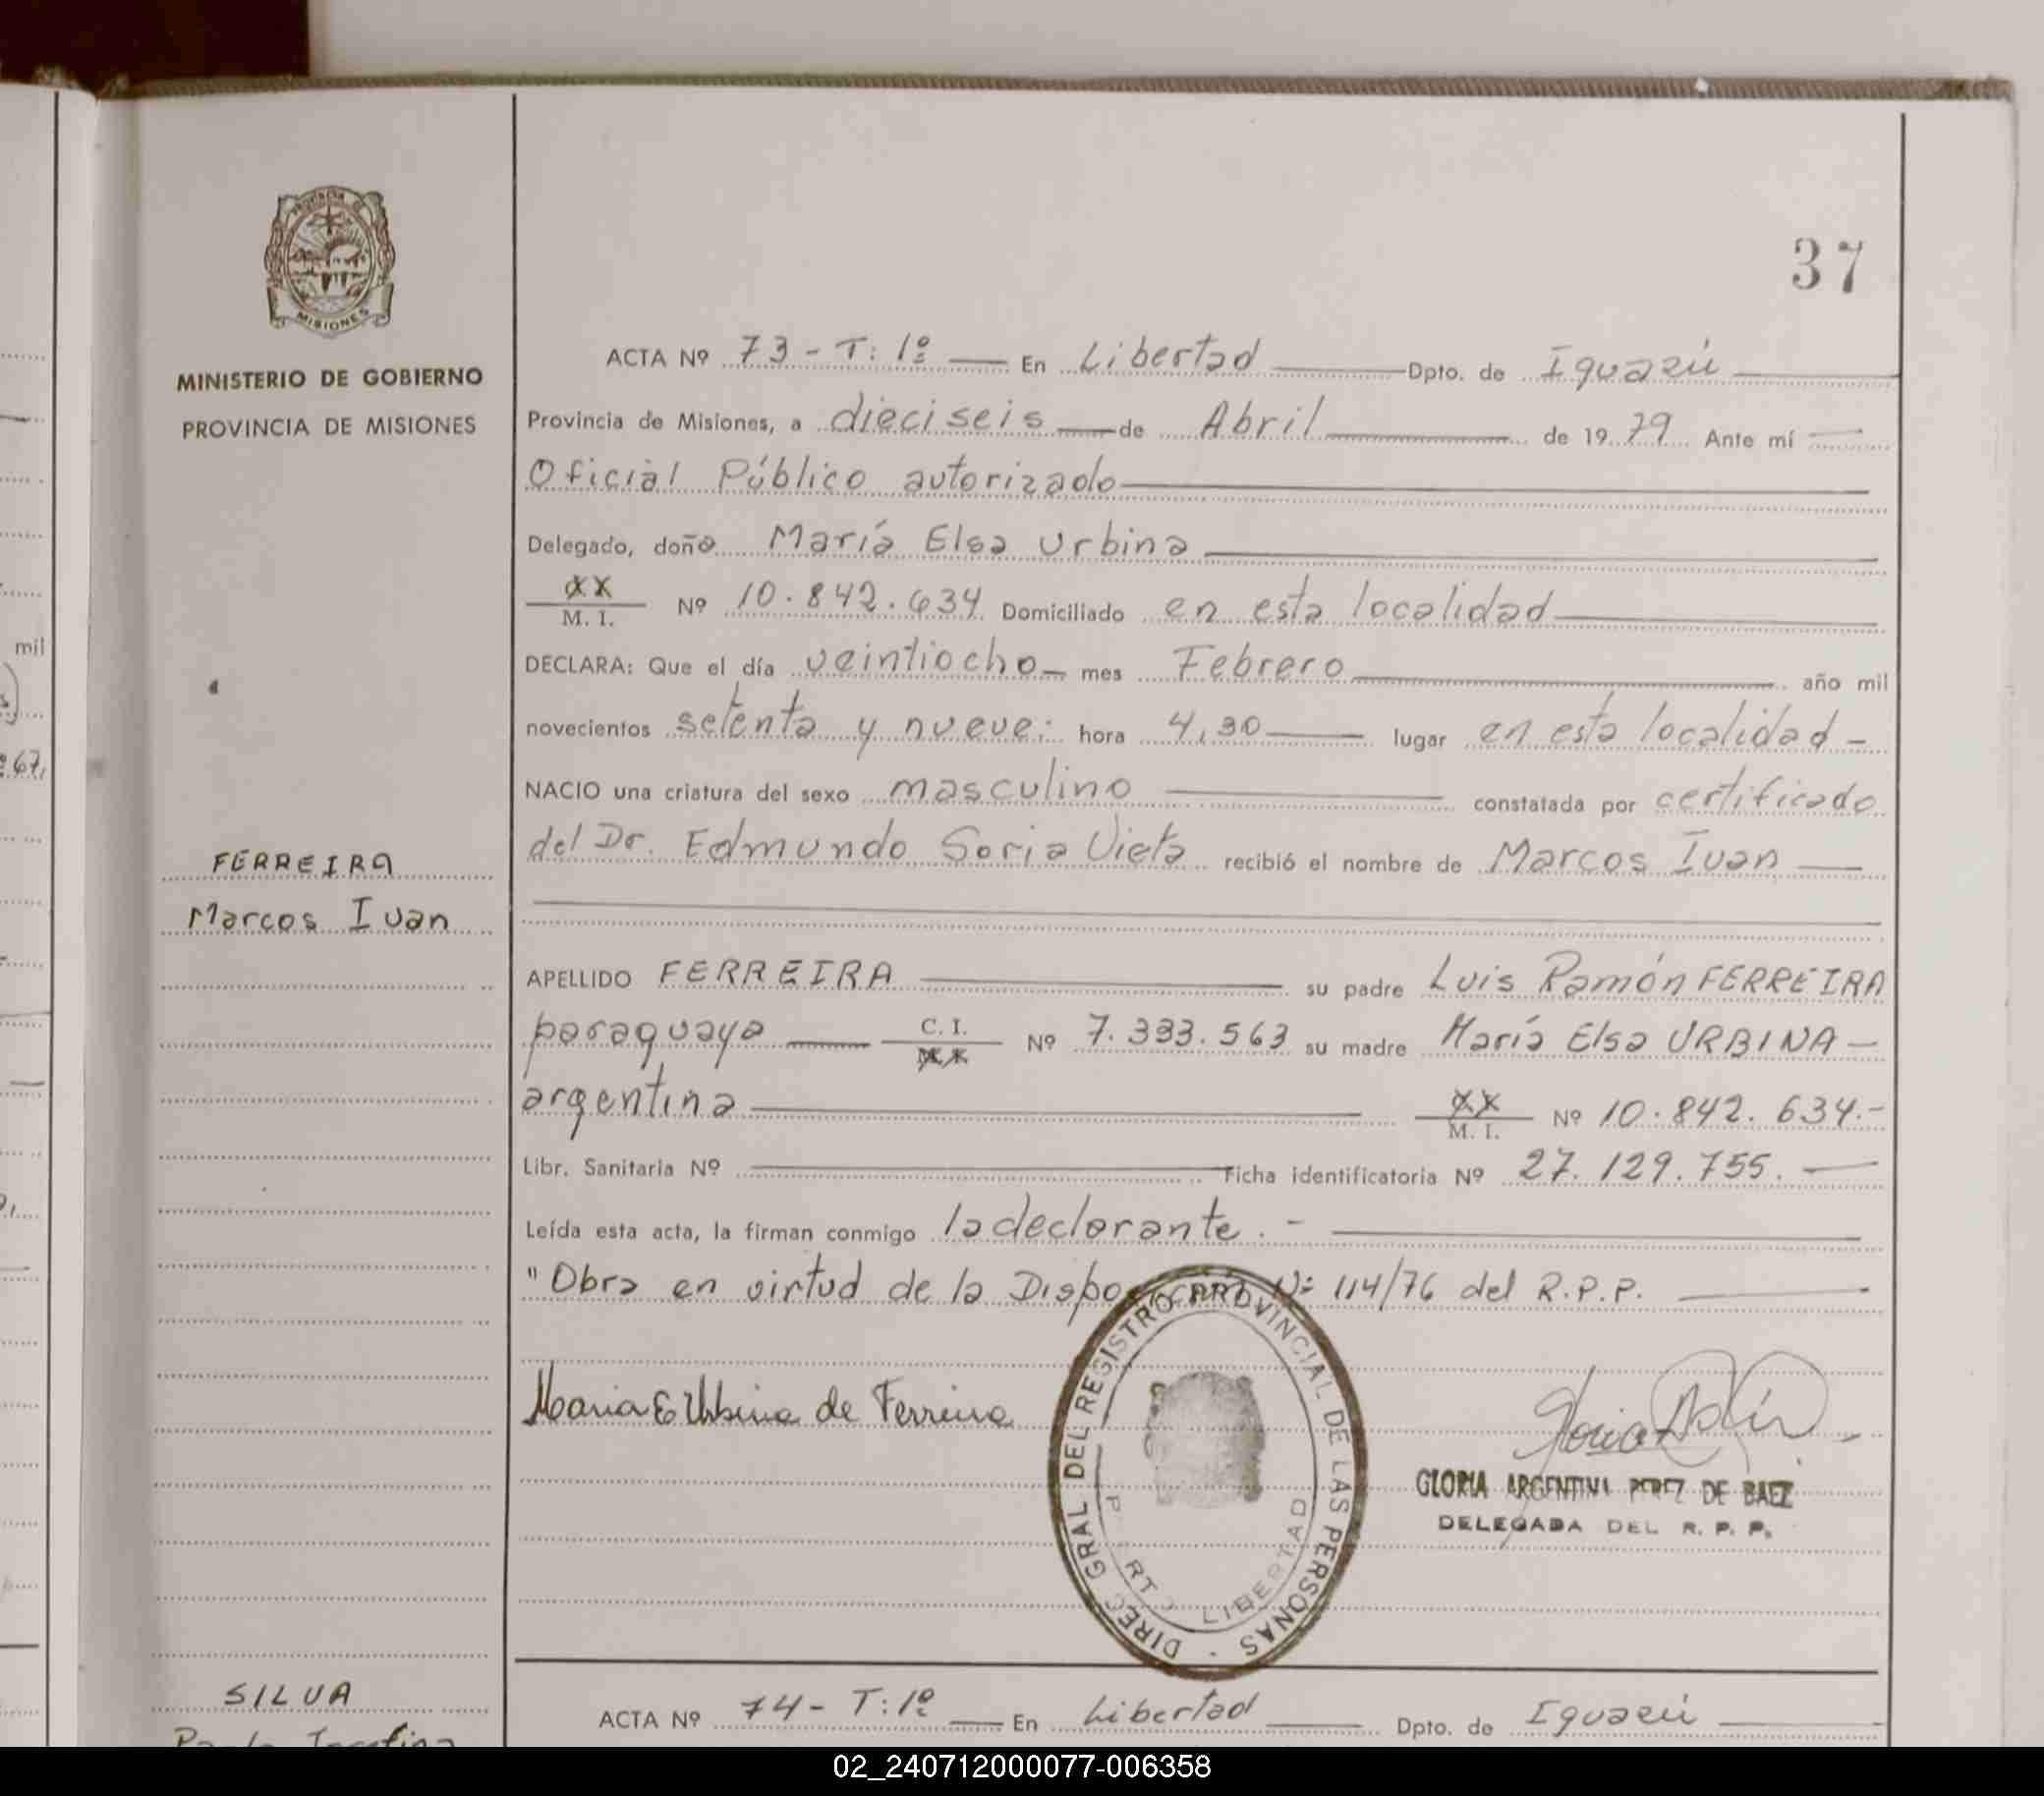 37
PROVINCIA DE
MISIONES
MINISTERIO DE GOBIERNO
PROVINCIA DE MISIONES
mil
67,
FERREIRA
Marcos Ivan
ACTA Nº 73 - T: 1º En Libertad Dpto. de Iguazú
Provincia de Misiones, a dieciseis de Abril de 1979 Ante mí
Oficial Público autorizado
Delegado, doña María Elsa Urbina
XX
M. I. Nº 10.842.634 Domiciliado en esta localidad
DECLARA: Que el día veintiocho mes Febrero año mil
novecientos setenta y nueve: hora 4,30 lugar en esta localidad -
NACIO una criatura del sexo masculino constatada por certificado
del Dr. Edmundo Soria Vieta recibió el nombre de Marcos Ivan
APELLIDO FERREIRA su padre Luis Ramón FERREIRA
paraguaya C. I. Nº 7.333.563 su madre María Elsa URBINA -
argentina XX M. I. Nº 10.842.634.-
Libr. Sanitaria Nº Ficha identificatoria Nº 27.129.755.
Leída esta acta, la firman conmigo la declarante. -
"Obra en virtud de la Disposición Nº 114/76 del R.P.P.
Maria E Urbina de Ferreira
DIREC GRAL DEL REGISTRO PROVINCIAL DE LAS PERSONAS
P RTO LIBERTAD
GLORIA ARGENTINA PEREZ DE BAEZ
DELEGADA DEL R. P. P.
SILVA
ACTA Nº 74 - T: 1º En Libertad Dpto. de Iguazú
02_240712000077-006358